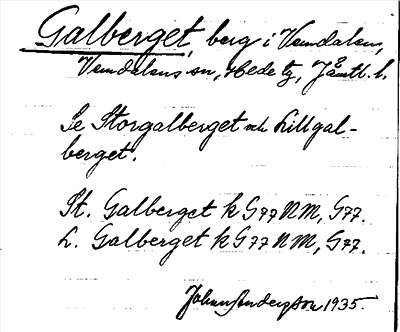 Galberget, berg i Vemdalen,
Vemdalens sn, Hede tg, Jämtl. l.
Se Storgalberget och Lillgal-
berget.
St. Galberget k G77 NM, G77.
L. Galberget k G77 NM, G77.
Johan Anderzson 1935.